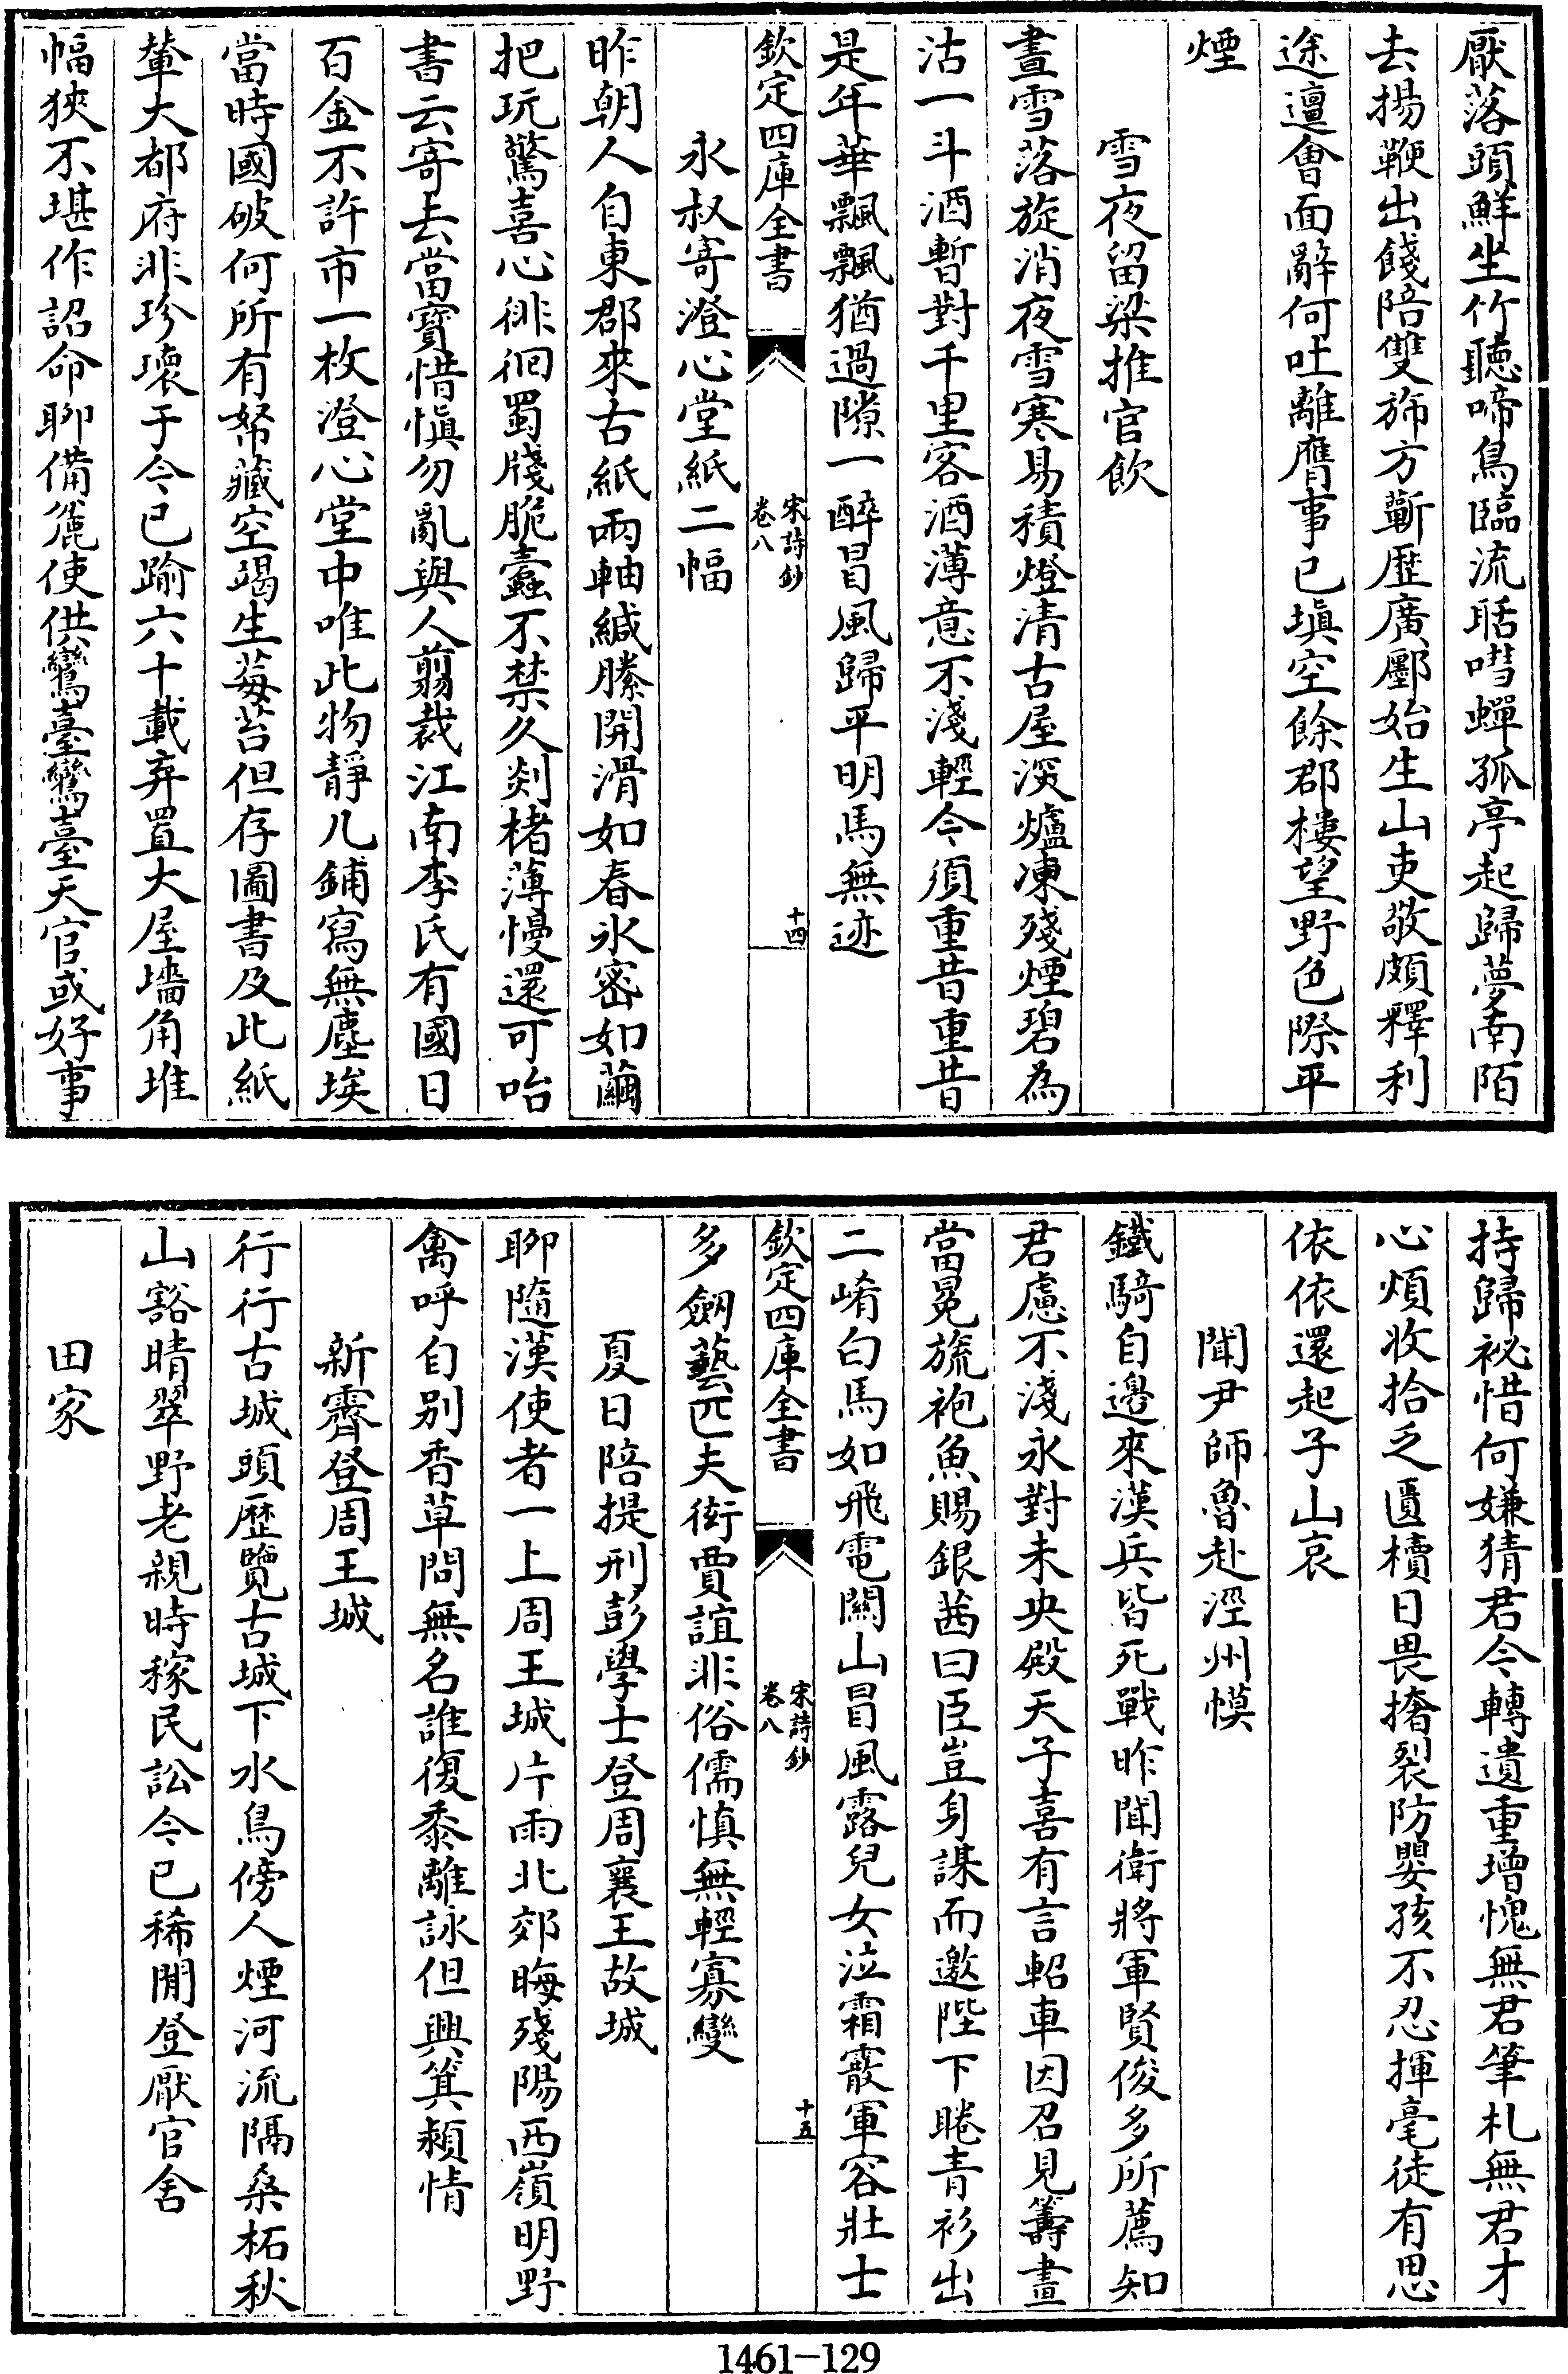 厭落頭鮮坐竹聽啼鳥臨流聒嘒蟬孤亭起歸夢南陌
去揚鞭出餞陪雙斾方蘄歷廣鄽始生山吏敬頗釋利
途邅會面辭何吐離膺事已塡空餘郡樓望野色際平
煙
雪夜留梁推官飲
晝雪落旋消夜雪寒易積燈清古屋深爐凍殘煙碧為
沽一斗酒暫對千里客酒薄意不淺輕今須重昔重昔
是年華飄飄猶過隙一醉冒風歸平明馬無迹
欽定四庫全書
宋詩鈔
卷八
十四
永叔寄澄心堂紙二幅
昨朝人自東郡來古紙兩軸緘縢開滑如春氷密如繭
把玩驚喜心徘徊蜀牋脆蠹不禁久剡楮薄慢還可咍
書云寄去當寶惜愼勿亂與人翦裁江南李氏有國日
百金不許市一枚澄心堂中唯此物靜几鋪寫無塵埃
當時國破何所有帑藏空竭生莓苔但存圖書及此紙
輦大都府非珍瓌于今已踰六十載弃置大屋墻角堆
幅狹不堪作詔命聊備麄使供鸞臺鸞臺天官或好事
持歸祕惜何嫌猜君今轉遺重增愧無君筆札無君才
心煩收拾乏匱櫝日畏撦裂防嬰孩不忍揮毫徒有思
依依還起子山哀
聞尹師魯赴涇州幙
鐵騎自邊來漢兵皆死戰昨聞衛將軍賢俊多所薦知
君慮不淺永對未央殿天子喜有言軺車因召見籌畫
當冕旒袍魚賜銀茜曰臣豈身謀而邀陛下睠青衫出
二崤白馬如飛電關山冒風露兒女泣霜霰軍容壯士
欽定四庫全書
宋詩鈔
卷八
十五
多劒藝匹夫衒賈誼非俗儒慎無輕寡變
夏日陪提刑彭學士登周襄王故城
聊隨漢使者一上周王城片雨北郊晦殘陽西嶺明野
禽呼自别香草問無名誰復黍離詠但興箕潁情
新霽登周王城
行行古城頭歷覽古城下水鳥傍人煙河流隔桑柘秋
山豁晴翠野老親時稼民訟今已稀閒登厭官舍
田家
1461—129